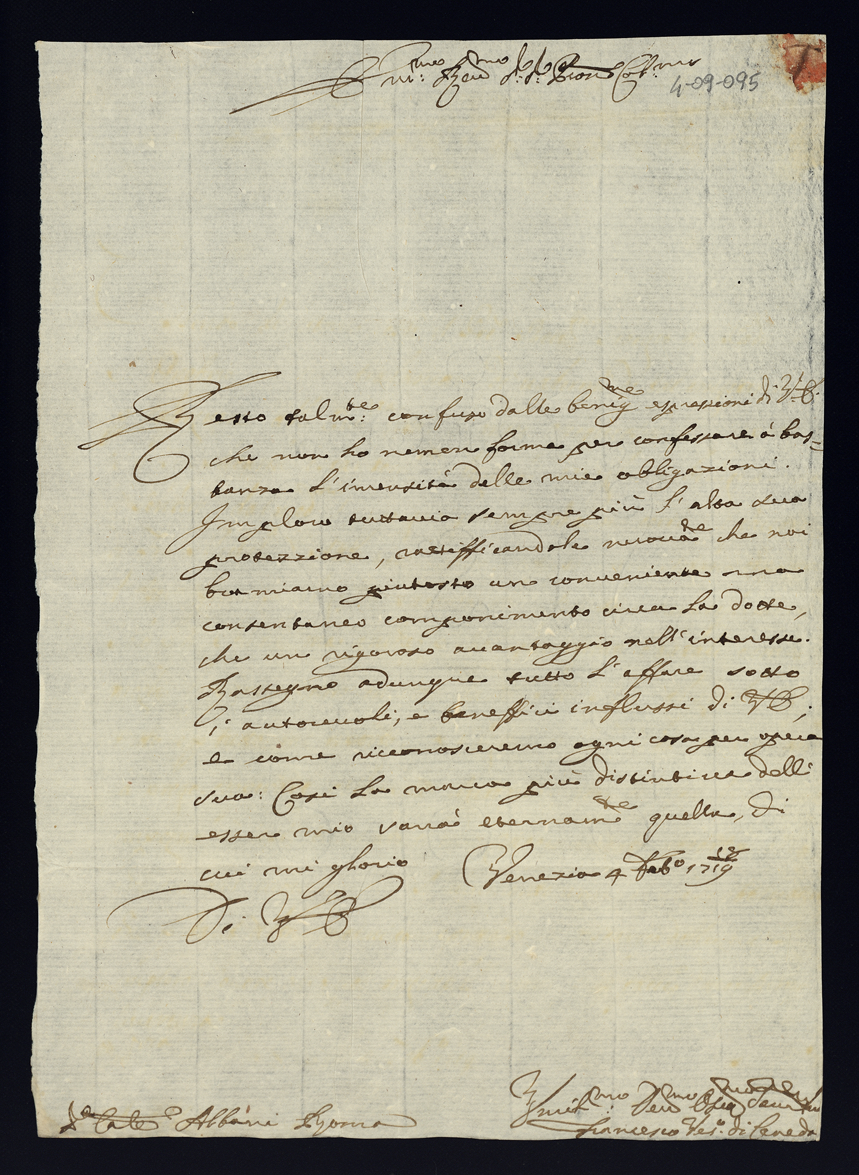 Em.mo Rev.mo Sig.r Sig.r Pron Col.mo
4-09-095
Resto talm.te confuso dalle benig.me espressioni di V.E.
che non ho nemen forma per confessare à bas=
tanza l'imensità delle mie obligazioni.
Imploro tuttavia sempre più l'alta sua
protezzione, ratifficandole che noi
bramiamo piutosto un conveniente, ma
consentaneo componimento circa la dotte,
che un rigoroso avantaggio nell'interesse.
Rassegno adunque tutto l'affare sotto
l'autorevoli, e beneffici influssi di VE;
e come riconosceremo ogni cosa per opera
sua: Cosi la marca più distintiva dell'
esser mio sarrà eternam.te quella, di
cui mi glorio Venezia 4 Feb.o 17 18/19
Di VE
S.r Card.le Albani Roma
Umil.mo Dev.mo Obl.mo
Francesco Ves.o di Ceneda